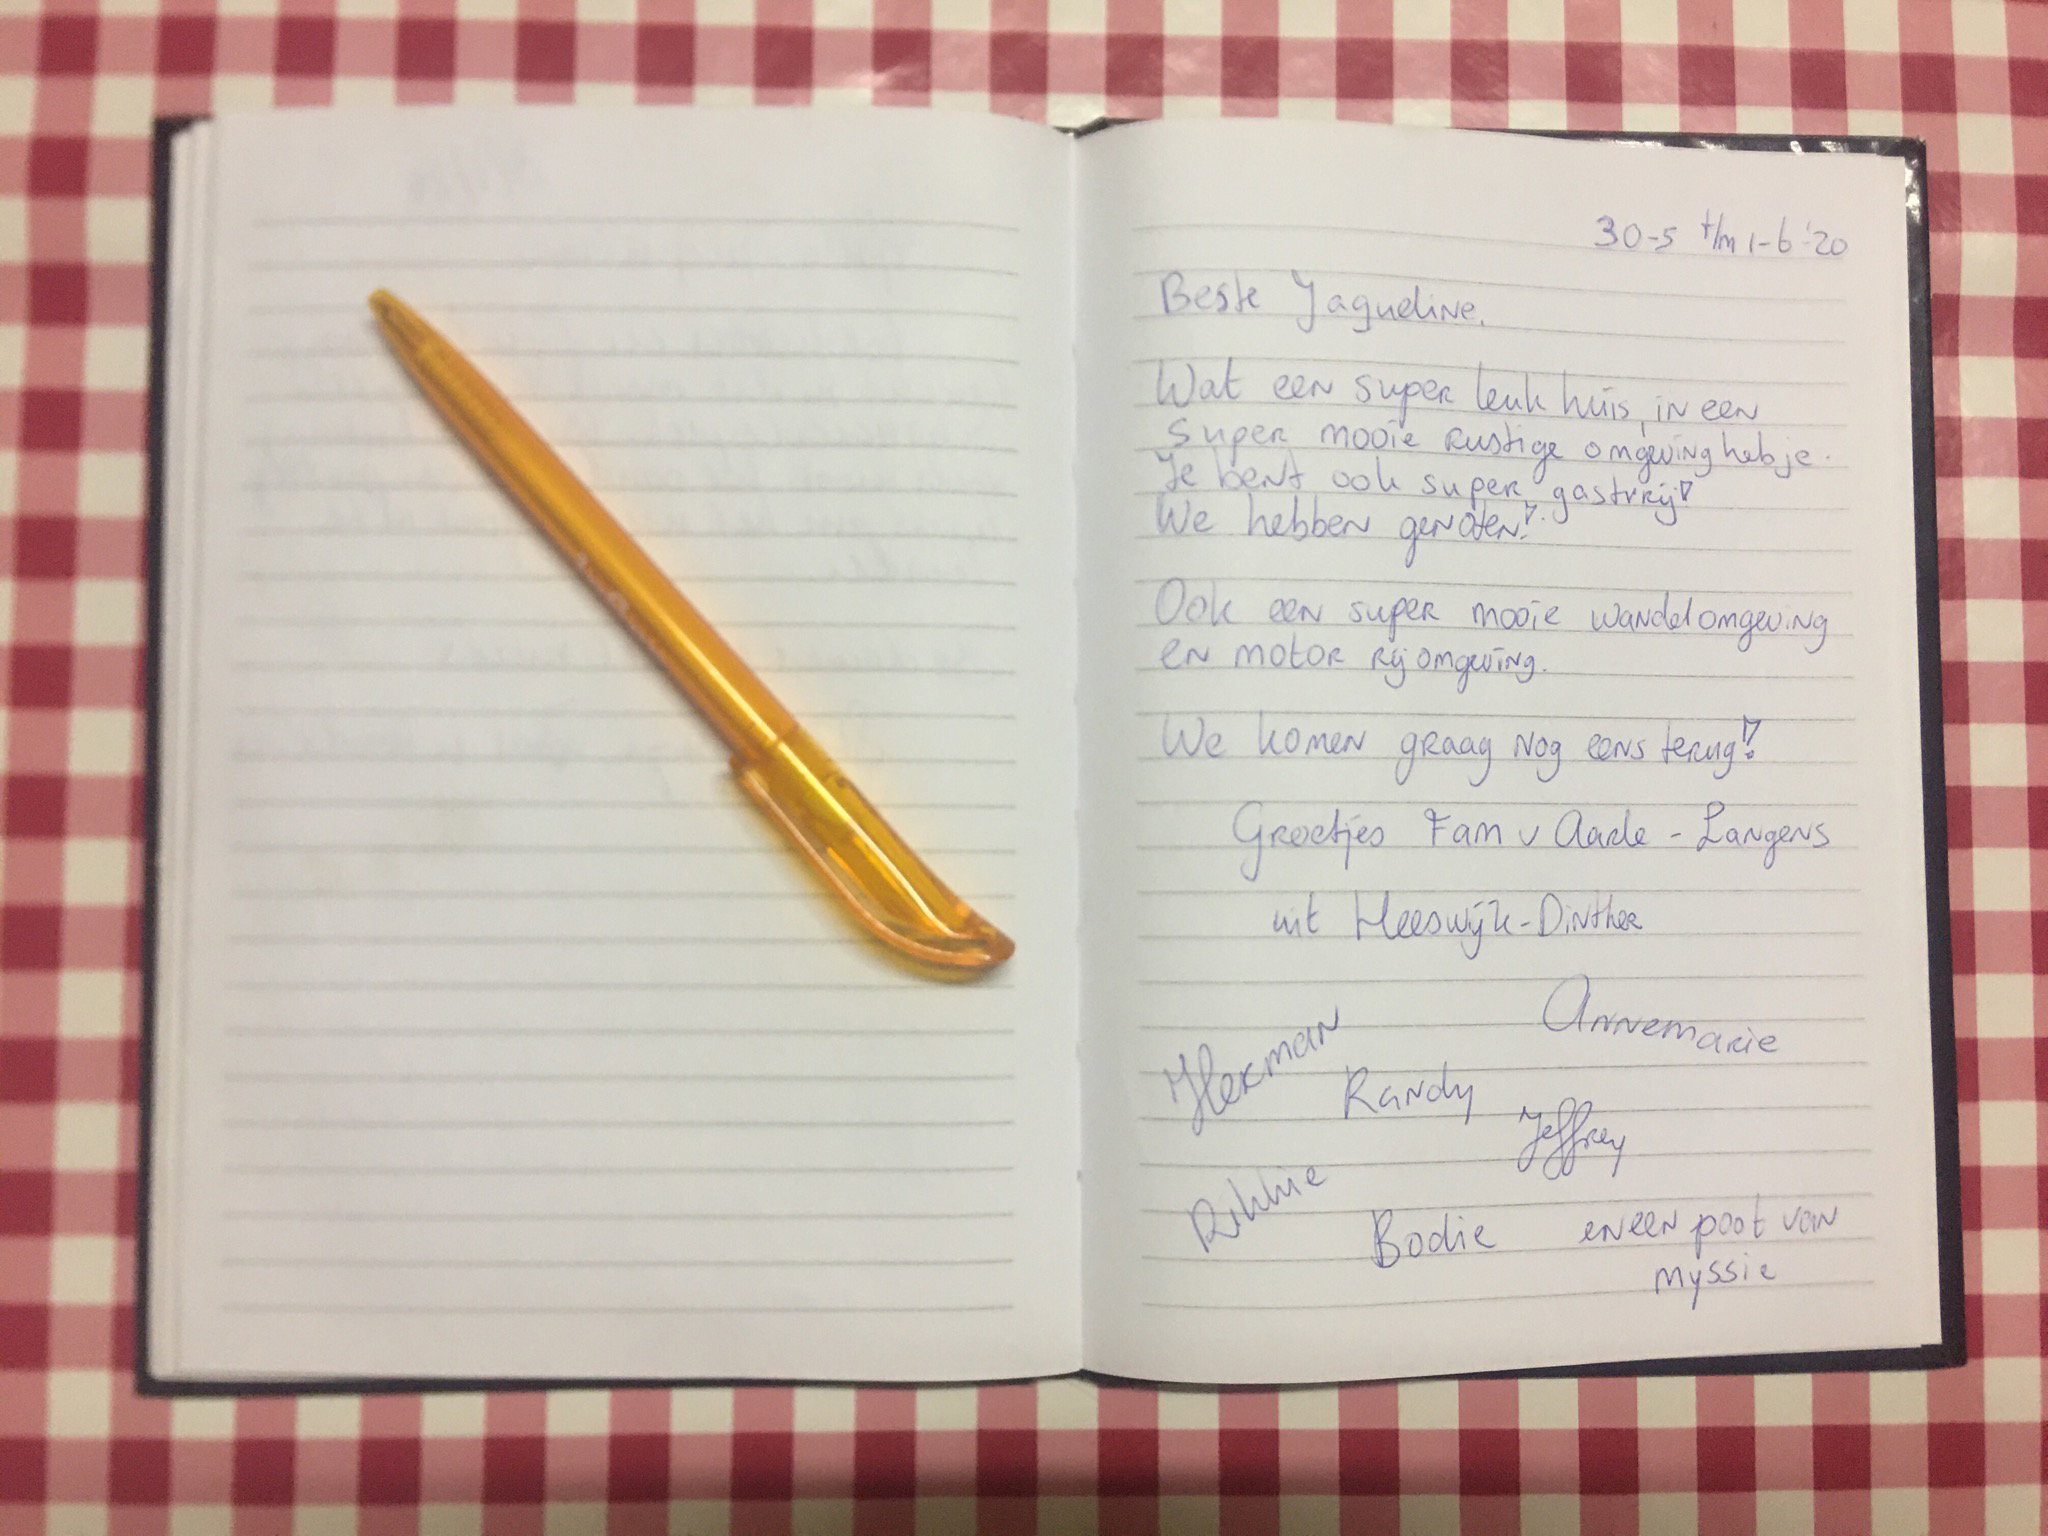 30-5 t/m 1-6-'20
Beste Jaqueline,
Wat een super leuk huis, in een
super mooie rustige omgeving heb je.
Je bent ook super gastvrij!
We hebben genoten!
Ook een super mooie wandelomgeving
en motor rij omgeving.
We komen graag nog eens terug!
Groetjes Fam v Aarle - Langens
uit Heeswijk-Dinther
Annemarie
Herman
Randy
Jeffrey
Rikkie
Bodie en een poot van
myssie